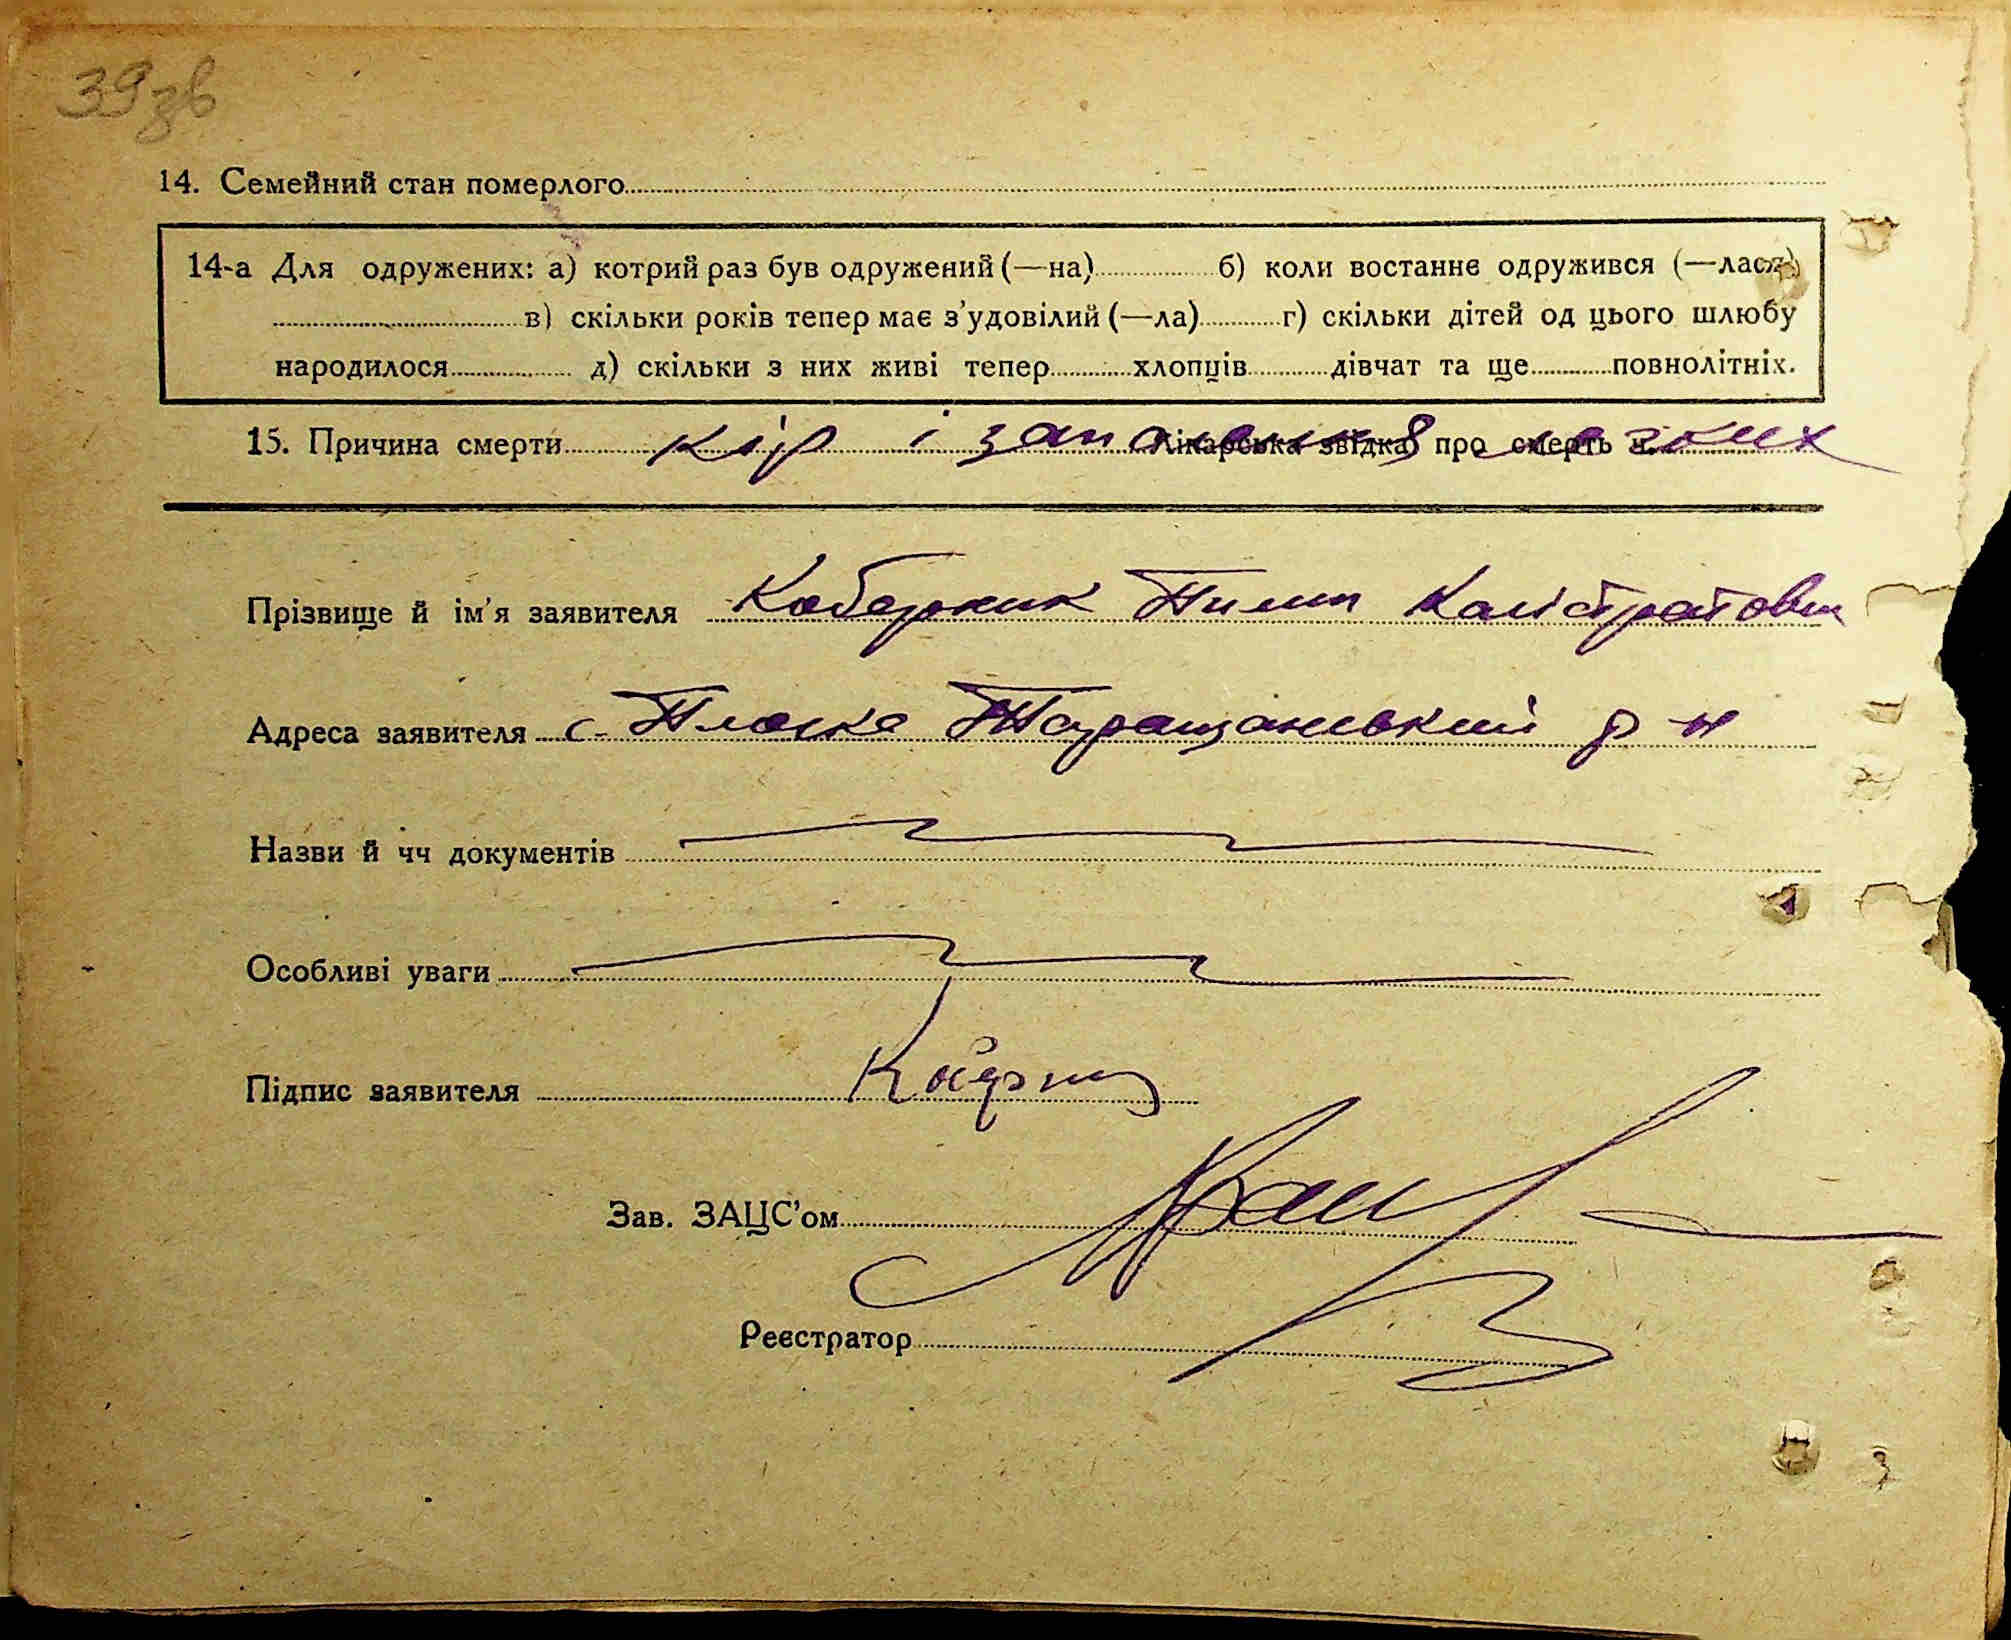 39зв
14. Семейний стан померлого
14-а Для одружених: а) котрий раз був одружений (—на) б) коли востаннє одружився (—лася)
в) скільки років тепер має з'удовілий (—ла) г) скільки дітей од цього шлюбу
народилося д) скільки з них живі тепер хлопців дівчат та ще повнолітніх.
15. Причина смерти кір і запалення легких Лікарська звідка про смерть ч.
Прізвище й ім'я заявителя Коберник Пилип Калістратови
Адреса заявителя с. Плоске Таращанський р н
Назви й чч документів
Особливі уваги
Підпис заявителя
Зав. ЗАЦС'ом
Реєстратор